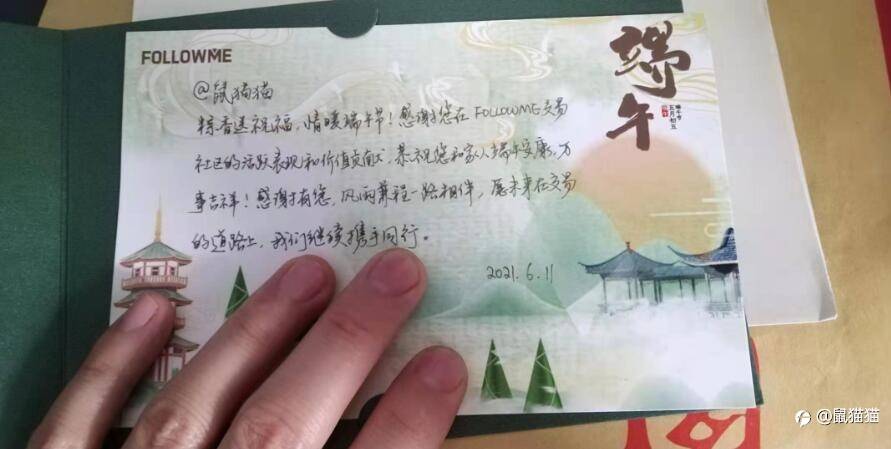 FOLLOWME
端午
端午节
五月初五
@鼠猫猫
粽香送祝福，情暖端午节！感谢您在FOLLOWME交易
社区的活跃表现和价值贡献，恭祝您和家人端午安康，万
事吉祥！感谢有您，风雨兼程一路相伴，愿未来在交易
的道路上，我们继续携手同行。
2021.6.11
@鼠猫猫